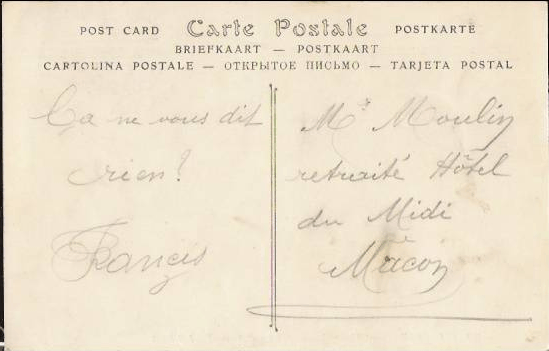 POST CARD Carte Postale POSTKARTE
BRIEFKAART — POSTKAART
CARTOLINA POSTALE — ОТКРЫТОЕ ПИСЬМО — TARJETA POSTAL
Ça ne vous dit
rien?
Francis
Mr Moulin
retraité Hôtel
du Midi
Mâcon